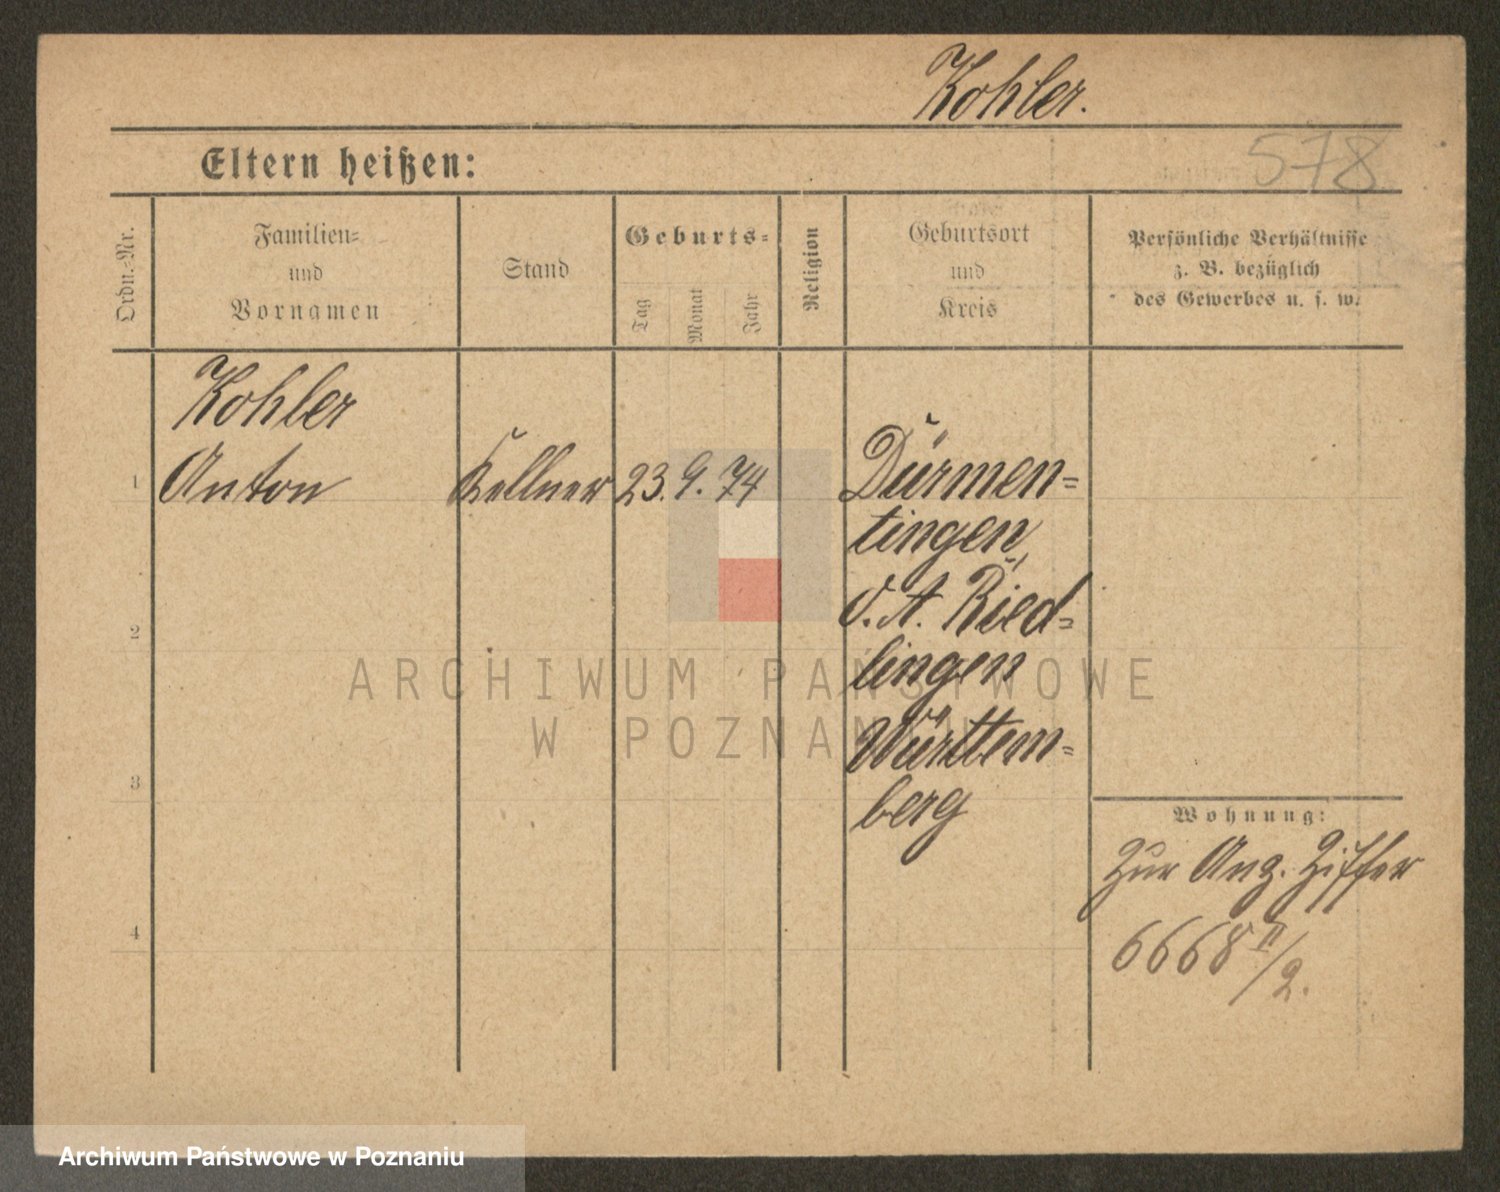 Kohler.
578
Eltern heißen:
Ordn.-Nr.
Familien-
und
Vornamen
Stand
Geburts-
Tag
Monat
Jahr
Religion
Geburtsort
und
Kreis
Persönliche Verhältnisse
z. B. bezüglich
des Gewerbes u. s. w.
Kohler
1 Anton Kellner 23. 9. 74 Dürmen-
tingen,
O. A. Ried-
2
lingen
Württem-
3
berg
Wohnung:
Zur Anz. Ziffer
4
6668 II/2.
ARCHIWUM PAŃSTWOWE
W POZNANIU
Archiwum Państwowe w Poznaniu